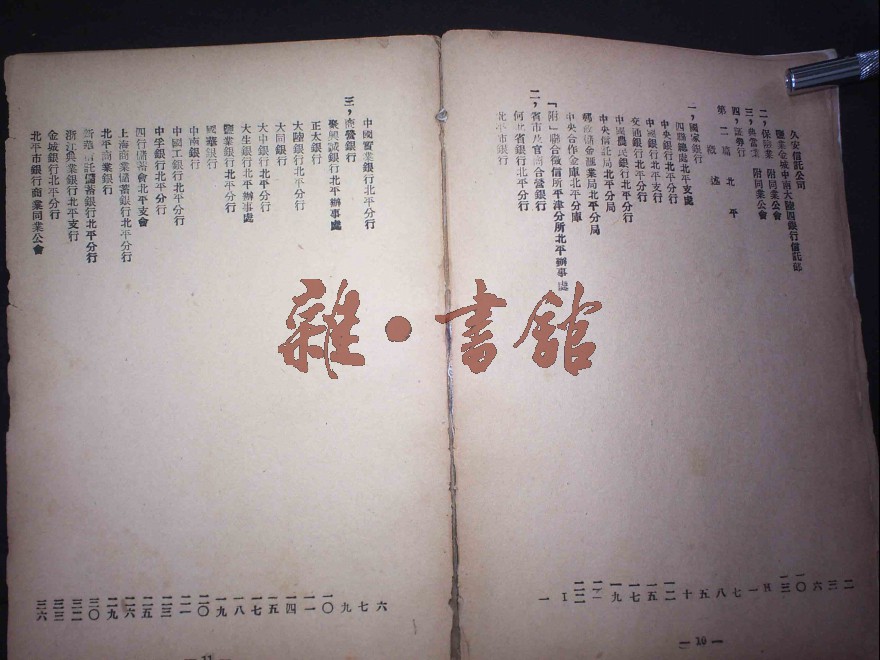 久安信託公司
鹽業金城中南大陸四銀行信託部
二，保險業 附同業公會
三，典當業 附同業公會
四，証券行
第二篇 北平
概述
一，國家銀行
四聯總處北平支處
中央銀行北平分行
中國銀行北平支行
交通銀行北平分行
中國農民銀行北平分行
中央信託局北平分局
郵政儲金匯業局北平分局
中央合作金庫北平分庫
「附」聯合徵信所平津分所北平辦事處
二，省市及官商合營銀行
河北省銀行北平分行
北平市銀行
— 10 —
中國實業銀行北平分行
三，商營銀行
聚興誠銀行北平辦事處
正太銀行
大陸銀行北平分行
大同銀行
大中銀行北平分行
大生銀行北平分行
鹽業銀行北平辦事處
國華銀行
中南銀行
中國工銀行北平分行
中孚銀行北平分行
四行儲蓄會北平支會
上海商業儲蓄銀行北平分行
北平商業銀行
新華信託儲蓄銀行北平分行
浙江興業銀行北平支行
金城銀行北平分行
北平市銀行商業同業公會
六
七
九
一〇
一一
一四
一五
一七
一八
一九
二〇
二一
二三
二五
二六
二九
三〇
三二
三三
三六
11
雜·書館